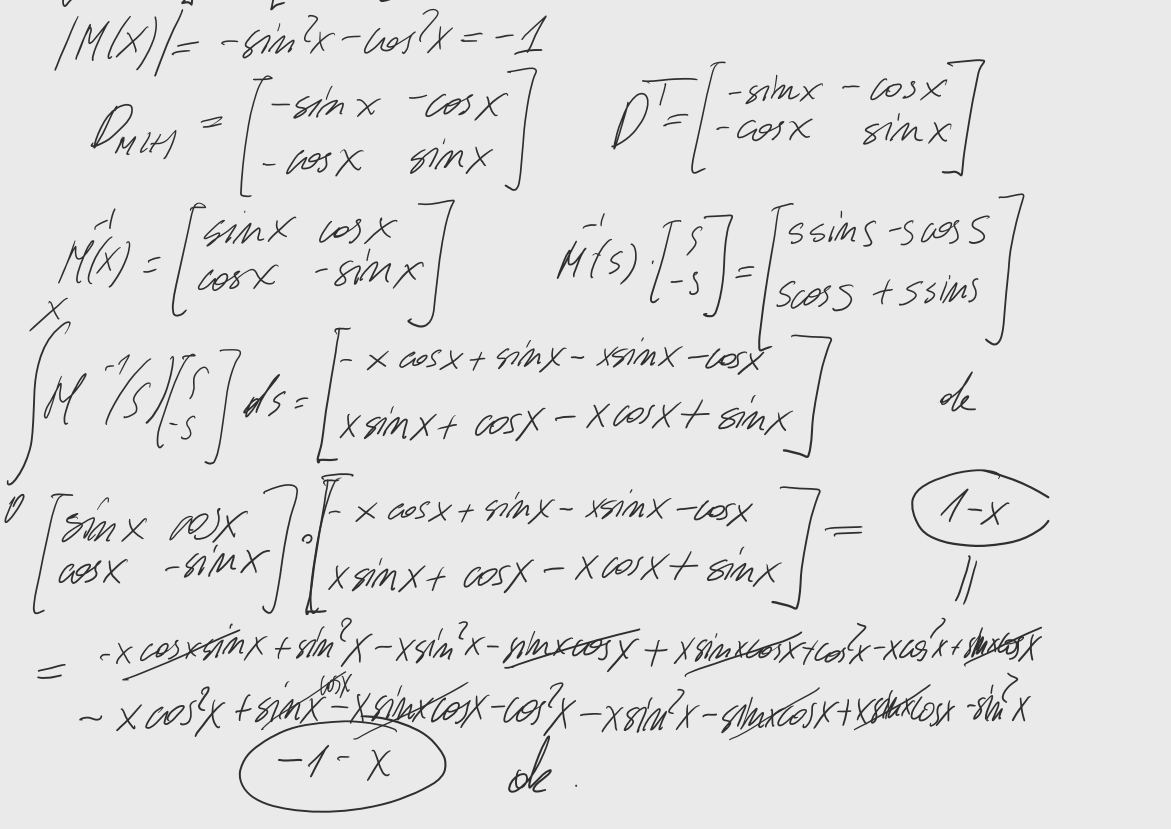 |M(x)| = -sin²x - cos²x = -1
D_M(x) = [-sin x -cos x ; -cos x sin x] D^T = [-sinx - cosx ; -cosx sinx]
M⁻¹(x) = [sinx cosx ; cosx -sinx] M⁻¹(s) · [s ; -s] = [s sins - s cos s ; s cos s + s sins]
∫₀ˣ M⁻¹(s) [s ; -s] ds = [- x cosx + sinx - xsinx - cosx ; x sinx + cosx - x cosx + sinx] ok
[sinx cosx ; cosx -sinx] · [- x cosx + sinx - xsinx - cosx ; x sinx + cosx - x cosx + sinx] = 1-x
=
= -x cosx sinx + sin²x - x sin²x - sinx cosx + x sinx cosx + cos²x - x cos²x + sinx cosx
- x cos²x + sinx cosx - x sinx cosx - cos²x - x sin²x - sinx cosx + x sinx cosx - sin²x
-1 - x ok.